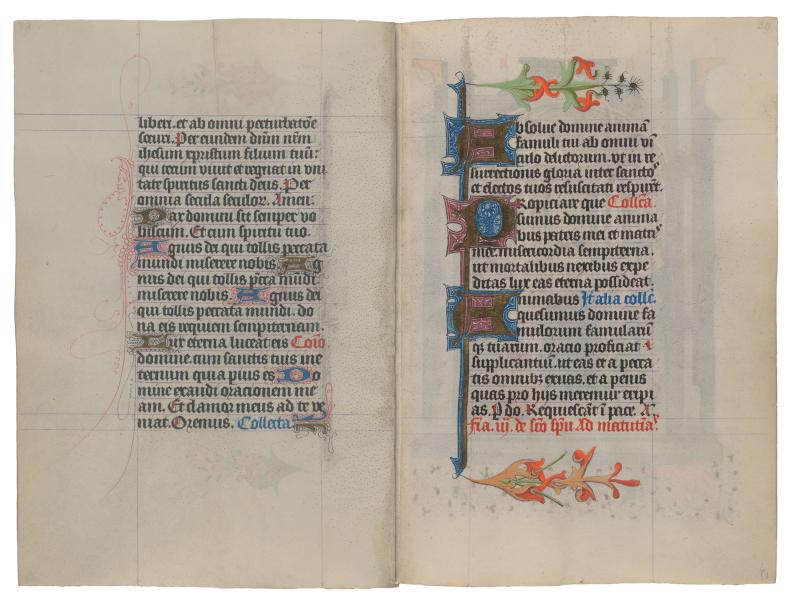 liberi. et ab omni perturbatōe
securi. Per eundem dn̄m nr̄m
ihesum xpristum filium tuū:
qui tecum viuit et regnat in vni
tate spiritus sancti deus. Per
omnia secula seculoꝝ. Amen:
Pax domini sit semper vo
biscum. Et cum spiritu tuo.
Agnus dei qui tollis peccata
mundi miserere nobis. Ag
nus dei qui tollis pc̄ca mūdi
miserere nobis. Agnus dei
qui tollis peccata mundi. do
na eis requiem sempiternam.
Lux eterna luceat eis Com̄o
domine. cum sanctis tuis in e
ternum quia pius es Do
mine exaudi orationem me
am. Et clamor meus ad te ve
niat. Oremus. Collecta.
Absolue domine animā
famuli tui ab omni vī
culo delictorum. vt in re
surrectionis gloria inter sancto s
et electos tuos resuscitati respirēt.
Propiciare que Collc̄a.
sumus domine anima
bus patris mei et matris
mee. misericordia sempiterna.
ut mortalibus nexibus expe
ditas lux eas eterna possideat.
nimabus Jt alia collc̄.
quesumus domine fa
mulorum famularū
qꝫ tuarum. oracio proficiat
supplicantiū. ut eas et a pecca
tis omnibꝫ exuas. et a penis
quas pro hijs meremur eripi
as. P do. Requiescāt ī pace. A
Fīa. iij. de sc̄o spū. Ad matutīas.
51